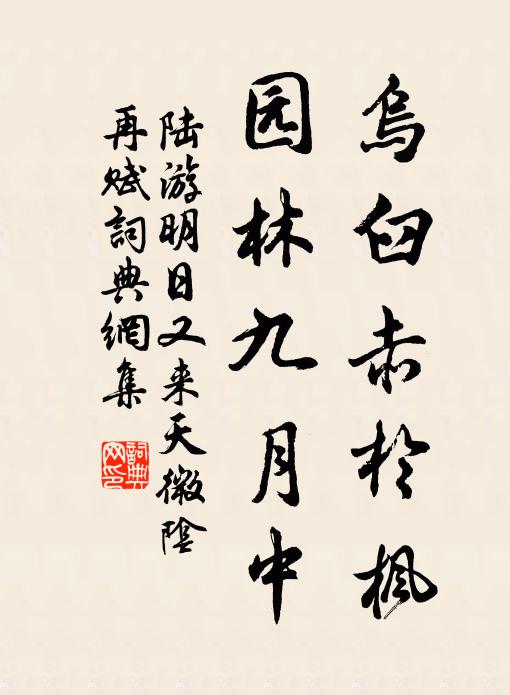 烏臼赤於楓
园林九月中
陆游明日又来天微陰
再赋詞典網集
詞典
网印